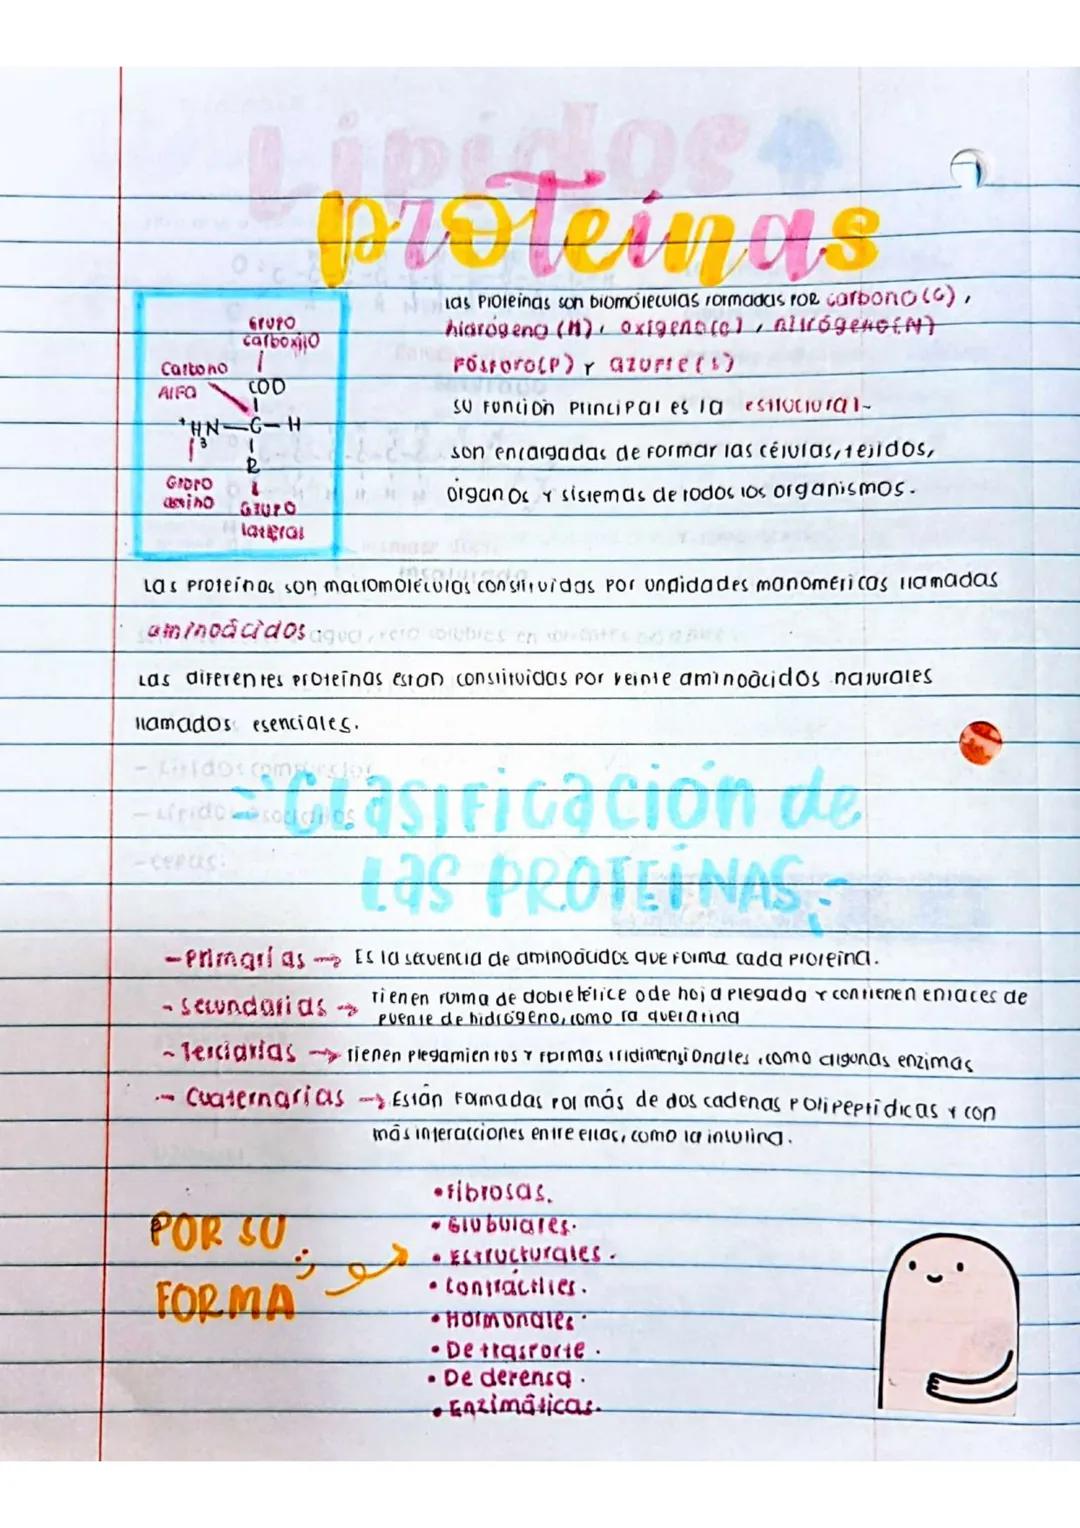 Proteínas
Grupo
carboxilo
Carbono
Alfa
COO
⁺HN—C—H
3
R
Grupo
amino
Grupo
lateral
Las Proteínas son biomoléculas formadas por carbono(C),
hidrógeno (H), oxígeno(o), nitrógeno(N)
Fósforo(P) y azufre(s)
su función principal es la estructural-
son encargadas de formar las células, tejidos,
órganos y sistemas de todos los organismos.
Las proteínas son macromoléculas constituídas por unaidades manoméricas llamadas
aminoácidos
Las diferentes proteínas estan constituidas por veinte aminoácidos naturales
llamados esenciales.
Clasificación de
Las PROTEÍNAS
-Primarias → Es la secuencia de aminoácidos que forma cada proteína.
-secundarias → Tienen forma de doble hélice o de hoja plegada y contienen enlaces de
puente de hidrógeno, como la queratina
-Terciarias → Tienen plegamientos y formas tridimensionales, como algunas enzimas
-Cuaternarias → Están formadas por más de dos cadenas polipeptídicas y con
más interacciones entre ellas, como la insulina.
POR SU
FORMA
•Fibrosas.
•Globulares.
•Estructurales.
•Contráctiles.
•Hormonales.
•De trasporte.
•De defensa.
•Enzimáticas.